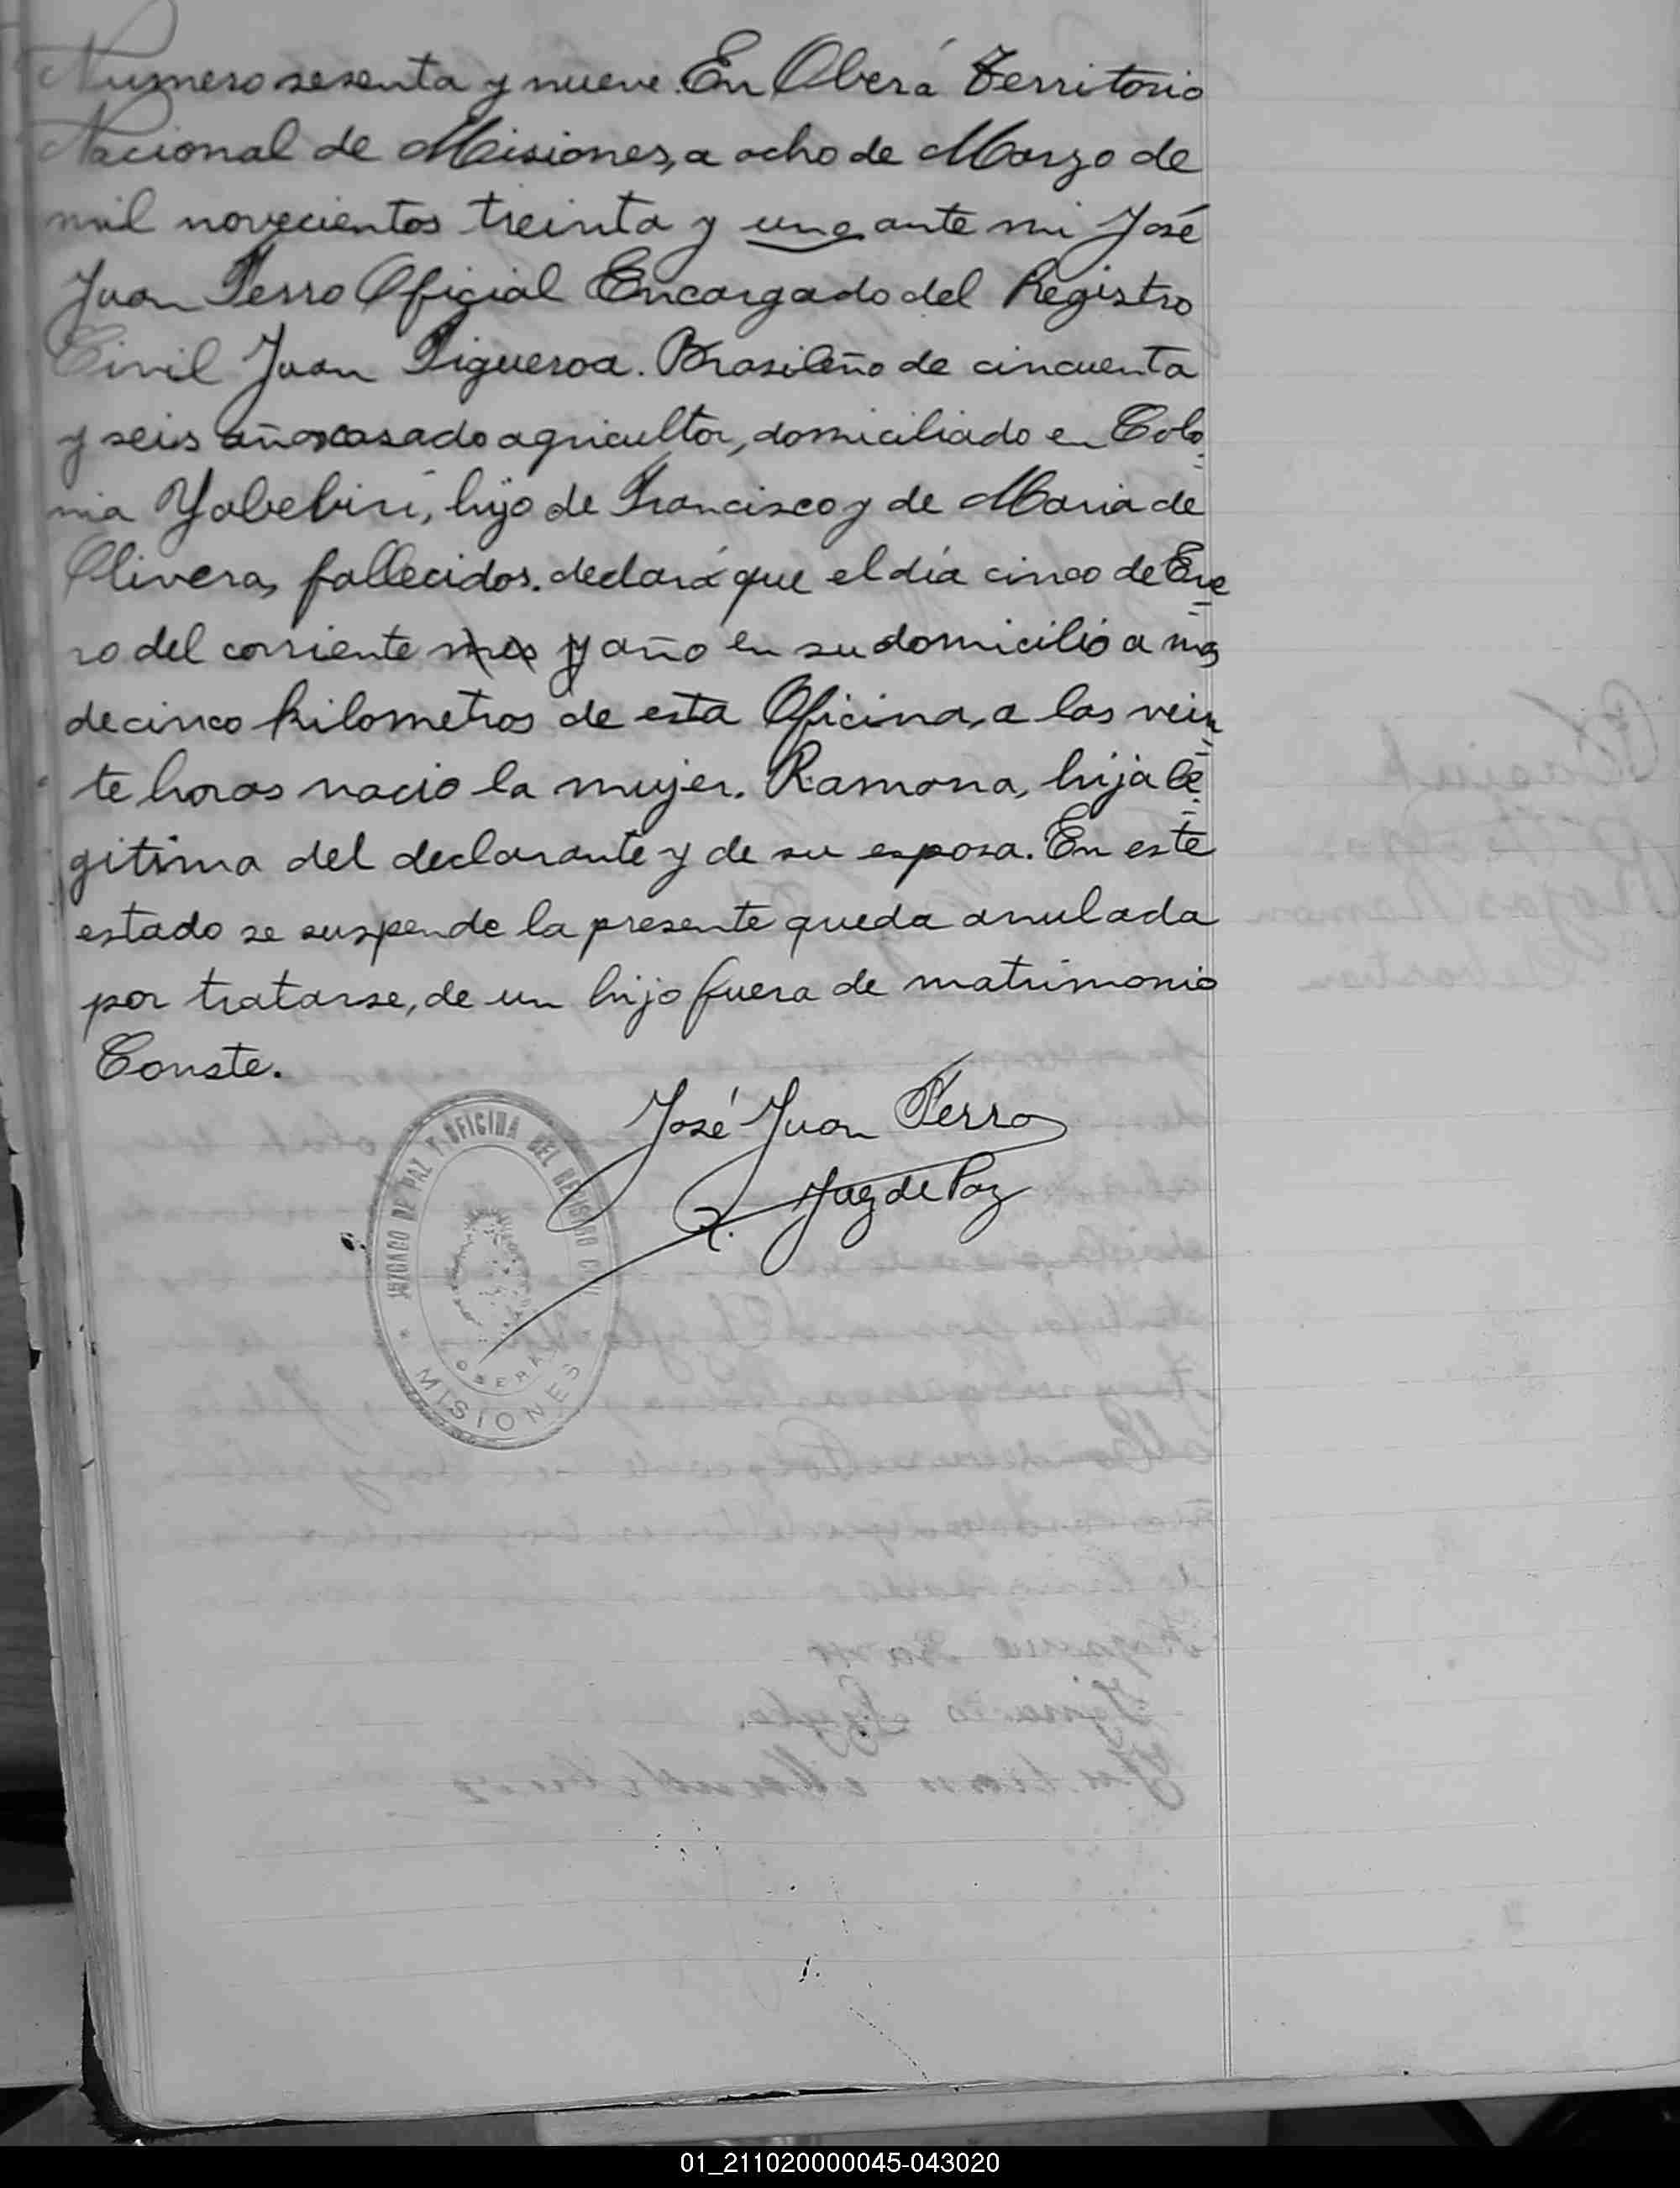 Numero sesenta y nueve. En Oberá Territorio
Nacional de Misiones, a ocho de Marzo de
mil novecientos treinta y uno ante mi José
Juan Ferro Oficial Encargado del Registro
Civil Juan Figueroa. Brasileño de cincuenta
y seis años casado agricultor, domiciliado en Colo
nia Yabebiri, hijo de Francisco y de Maria de
Olivera, fallecidos. declará que el día cinco de Ene
ro del corriente mes y año en su domicilio a mas
de cinco kilometros de esta Oficina, a las vein
te horas nacio la mujer. Ramona, hija le
gitima del declarante y de su esposa. En este
estado se suspende la presente queda anulada
por tratarse, de un hijo fuera de matrimonio
Conste.
José Juan Ferro
Juez de Paz
JUZGADO DE PAZ Y OFICINA DEL REGISTRO CIVIL
OBERA
MISIONES
01_211020000045-043020